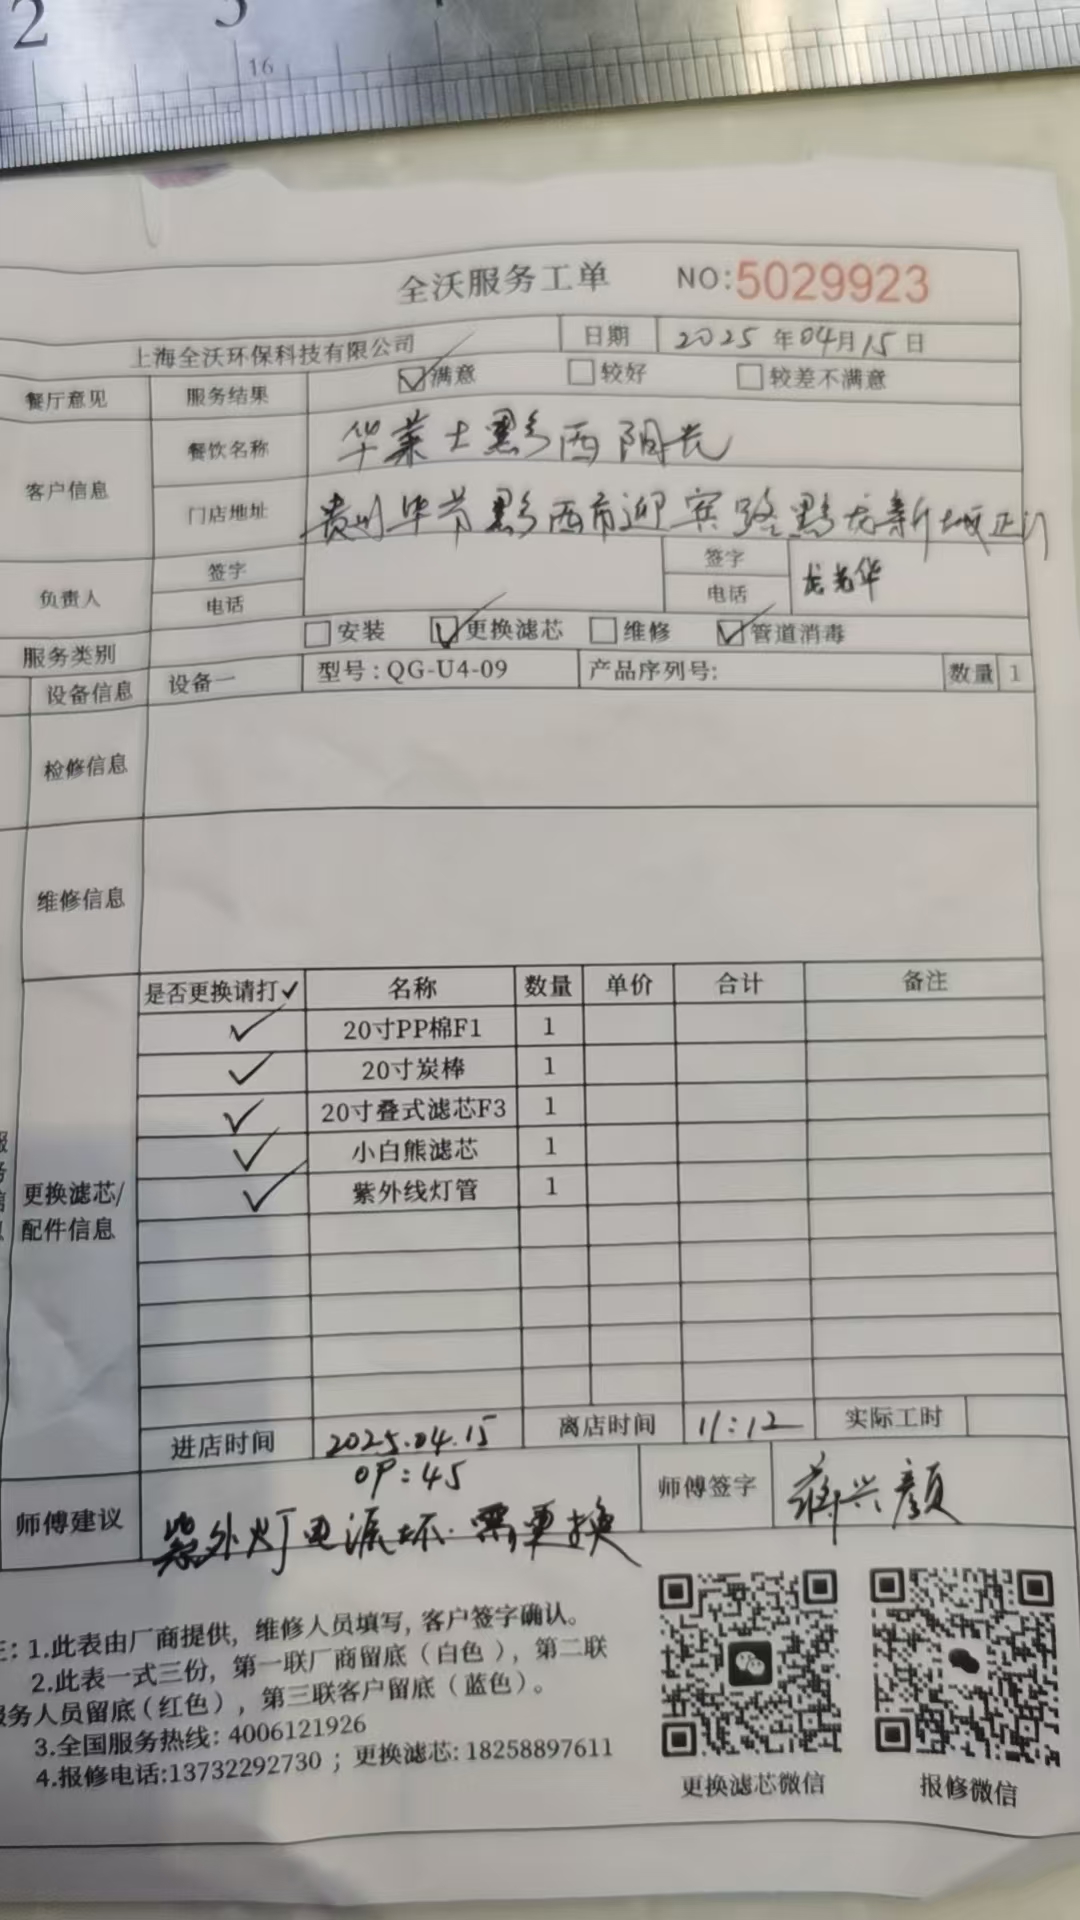 2 3
16
全沃服务工单 NO:5029923
上海全沃环保科技有限公司 日期 2025 年 04 月 15 日
餐厅意见 服务结果 ☑满意 ☐较好 ☐较差不满意
客户信息 餐饮名称 华莱士黔西阳长
门店地址 贵州毕节黔西市迎宾路黔龙新城正门
负责人 签字 签字 龙光华
电话 电话
服务类别 ☐安装 ☑更换滤芯 ☐维修 ☑管道消毒
设备信息 设备一 型号:QG-U4-09 产品序列号: 数量 1
检修信息
维修信息
是否更换请打✓ 名称 数量 单价 合计 备注
✓ 20寸PP棉F1 1
✓ 20寸炭棒 1
✓ 20寸叠式滤芯F3 1
✓ 小白熊滤芯 1
✓ 紫外线灯管 1
更换滤芯/
配件信息
进店时间 2025.04.15 离店时间 11:12 实际工时
09:45
师傅建议 紫外灯电源坏.需更换 师傅签字 蒋兴颜
注：1.此表由厂商提供, 维修人员填写, 客户签字确认。
2.此表一式三份, 第一联厂商留底（白色）, 第二联
服务人员留底(红色), 第三联客户留底（蓝色）。
3.全国服务热线: 4006121926
4.报修电话:13732292730 ; 更换滤芯: 18258897611
更换滤芯微信 报修微信